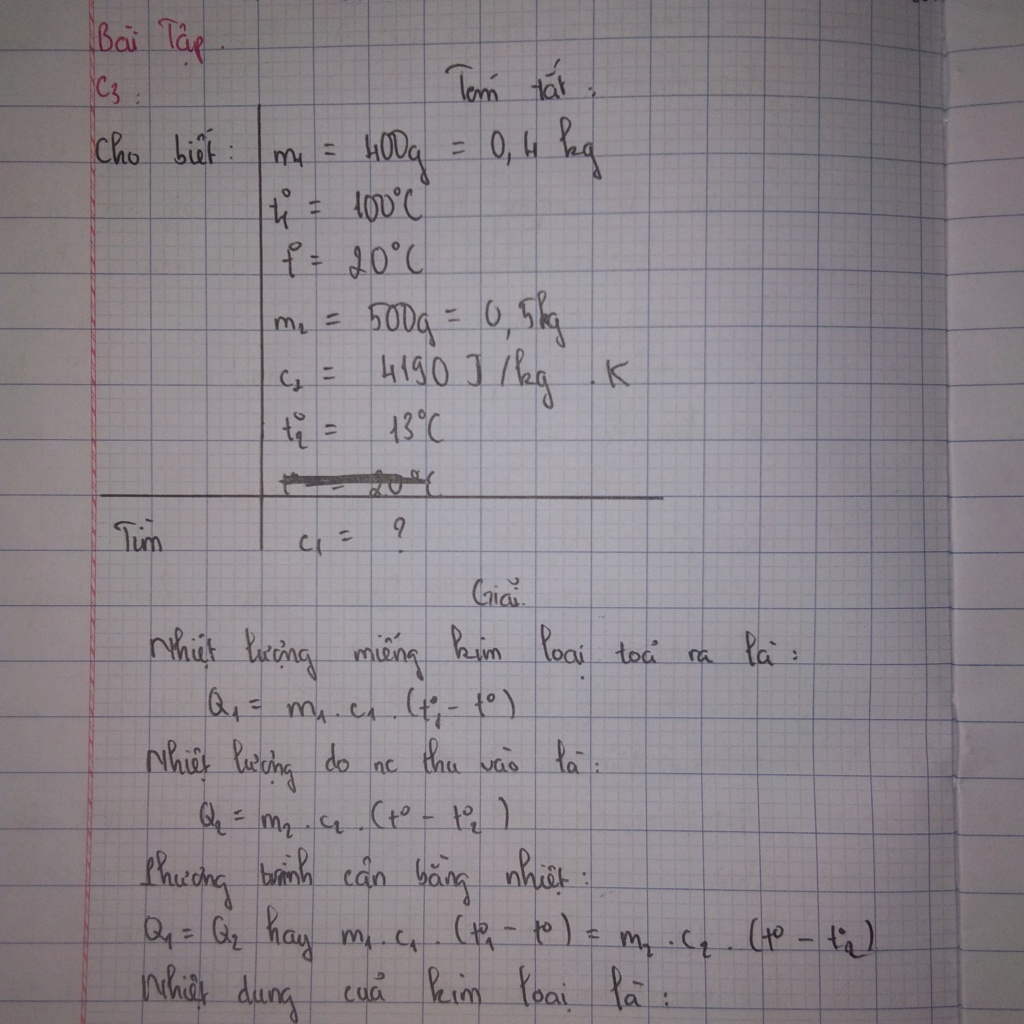 Bài Tập.
C3:
Tóm tắt:
Cho biết: m₁ = 400g = 0,4 kg
t₁° = 100°C
t° = 20°C
m₂ = 500g = 0,5kg
c₂ = 4190 J/kg . K
t₂° = 13°C
Tìm c₁ = ?
Giải.
Nhiệt lượng miếng kim loại toả ra là:
Q₁ = m₁ . c₁ . (t₁° - t°)
Nhiệt lượng do nc thu vào là:
Q₂ = m₂ . c₂ . (t° - t₂°)
Phương trình cân bằng nhiệt:
Q₁ = Q₂ hay m₁ . c₁ . (t₁° - t°) = m₂ . c₂ . (t° - t₂°)
Nhiệt dung của kim loại là: